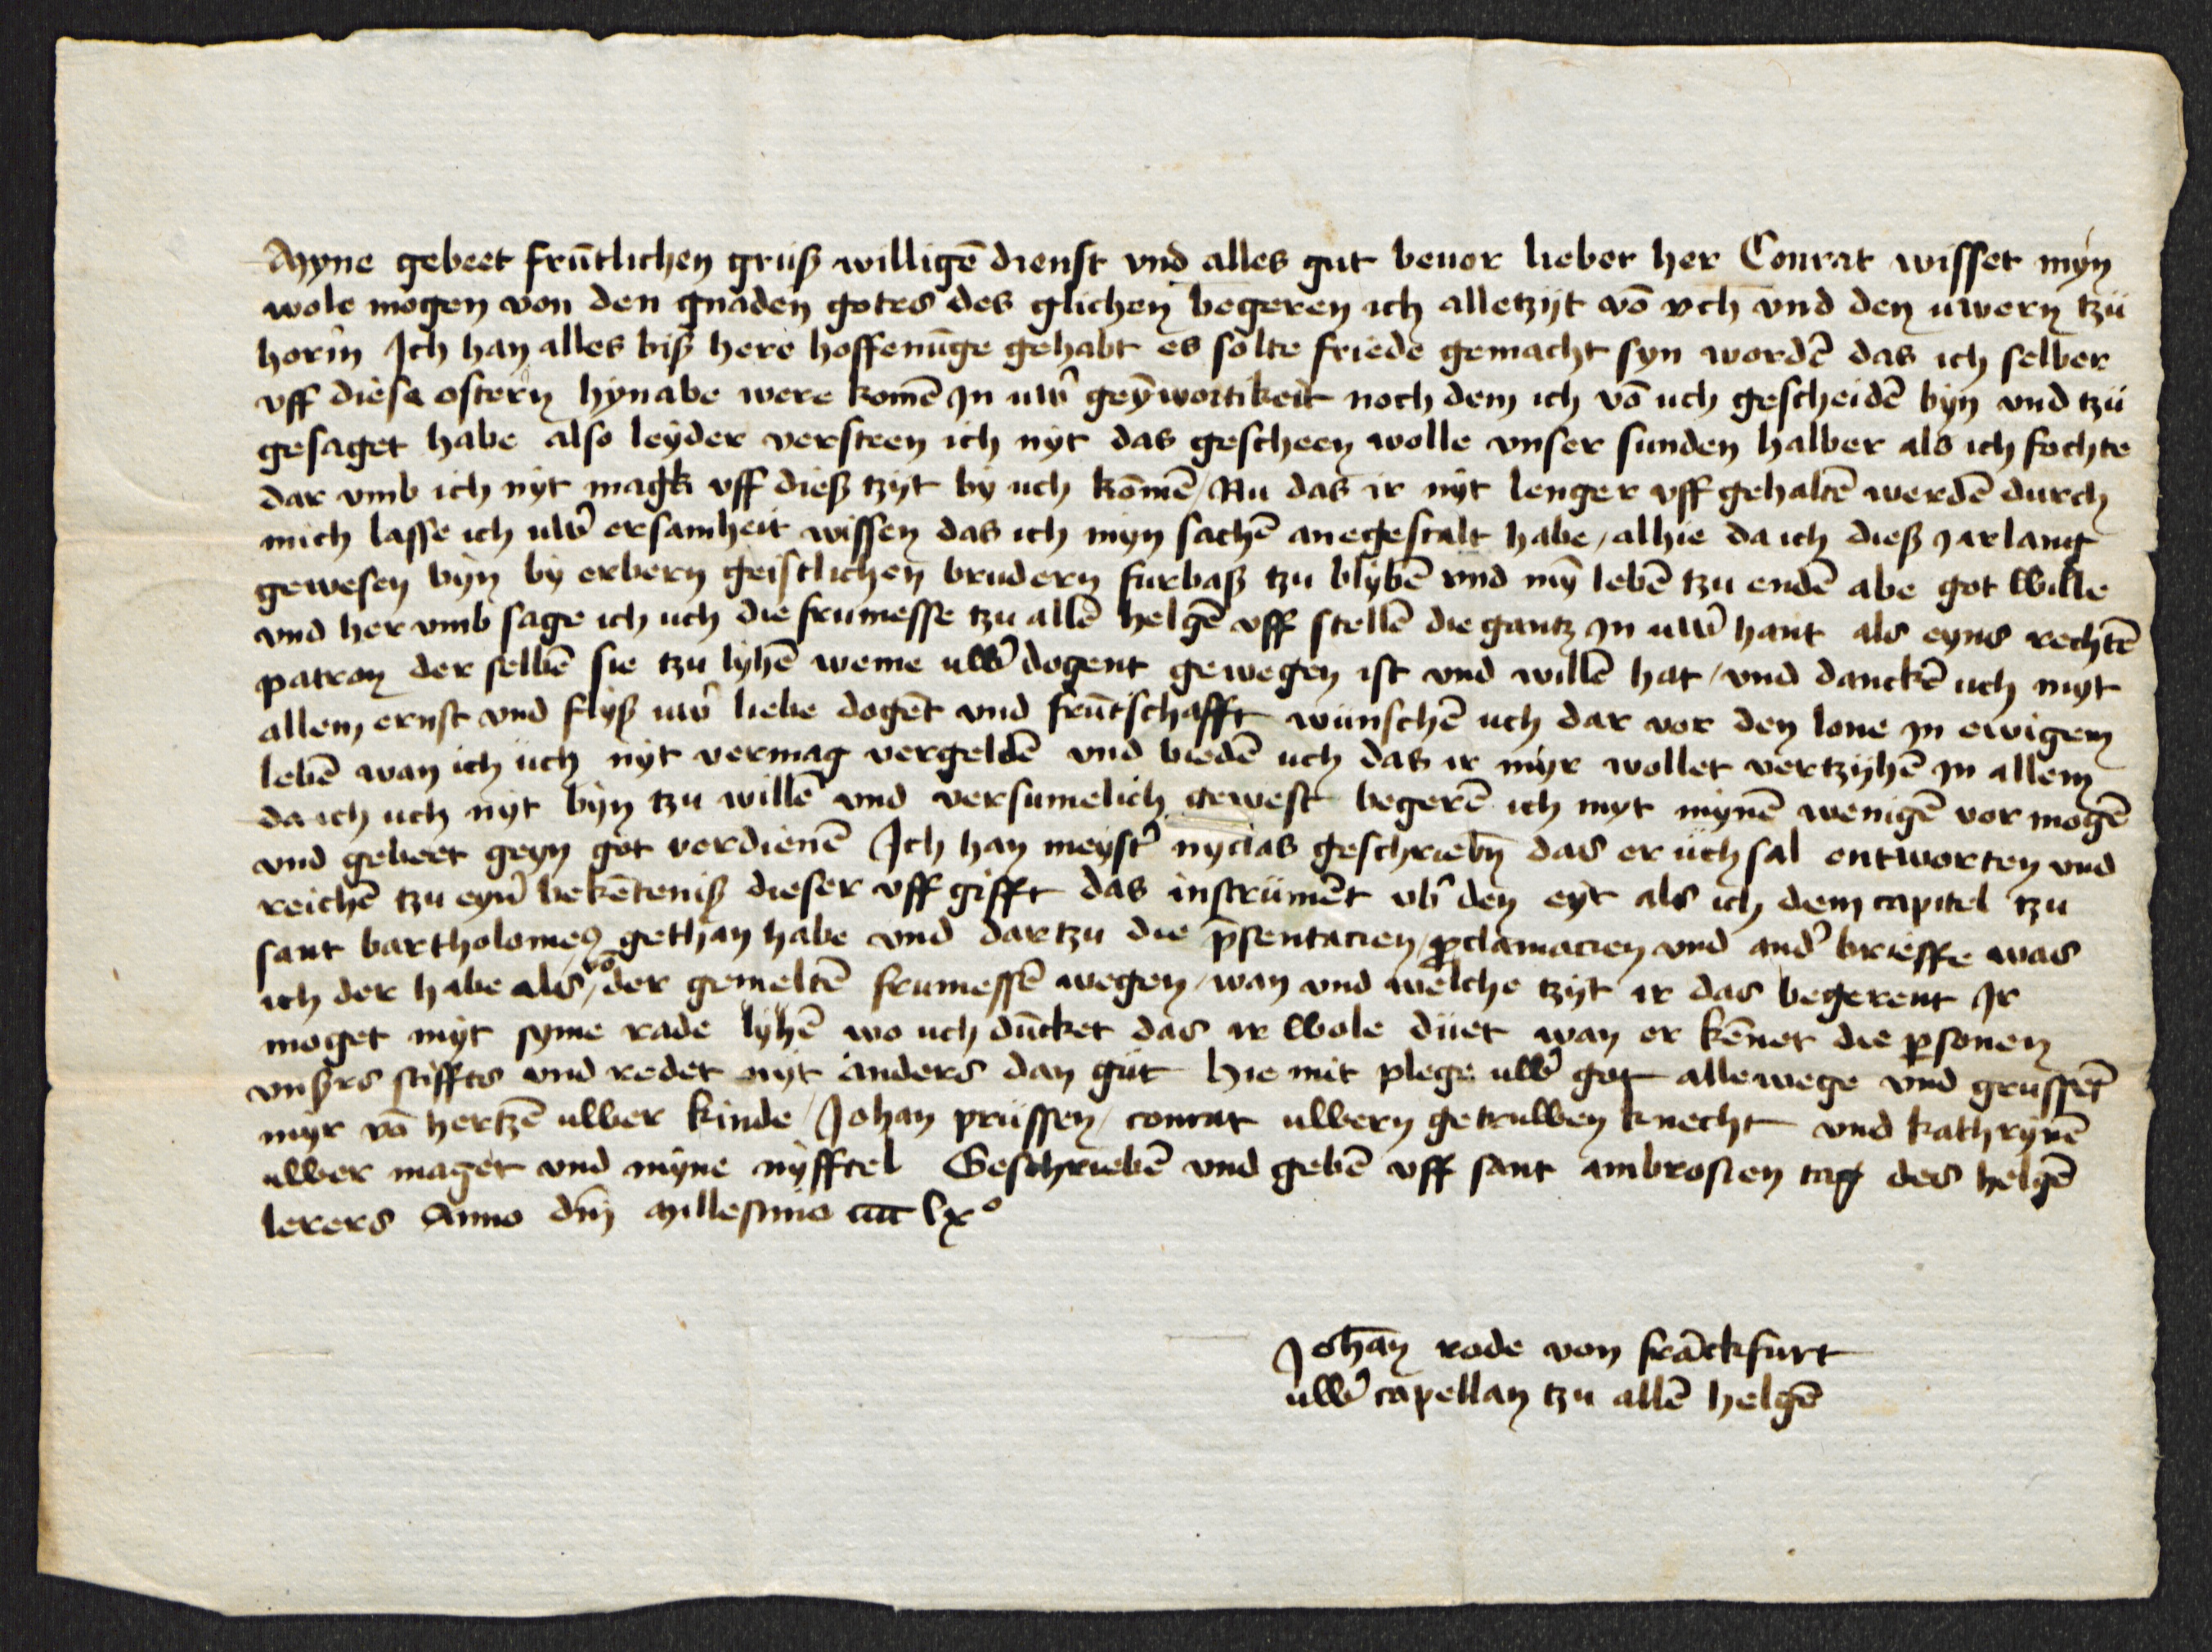 Myne gebeet frūtlichen gruß willigē dienst vnd alles gut beuor lieber her Conrat wisset myn
wole mogen von den gnaden gotes des glichen begeren ich alletzijt vō vch vnd den uwern tzu
horīn Ich han alles biß here hoffenūge gehabt es solte friede gemacht syn wordē das ich selber
vff diese ostern hynabe were komē In uw' geȳwortikeit noch dem ich vō uch gescheidē byn vnd tzu
gesaget habe also leyder versteen ich nyt das gescheen wolle vnser sunden halber als ich fochte
dar vmb ich nyt magk vff dieß tzyt by uch kōmē / Nu das ir nyt lenger vff gehaltē werdē durch
mich lasse ich uw' ersamheit wissen das ich myn sachē anegestalt habe / alhie da ich dieß Jarlang
gewesen byn by erbern geistlichen brudern furbaß tzu blybē vnd mȳ lebē tzu endē abe got wille
vnd her vmb sage ich uch die frumesse tzu allē helgē vff stellē die gantz In uw' hant als eyns rechtē
patron der selbē sie tzu lyhē weme uw' dogent gewegen ist vnd willē hat / vnd danckē uch myt
allem ernst vnd flyß uw' liebe dogēt vnd frūtschafft wunschē uch dar vor den lone In ewigem
lebē wan ich uch nyt vermag vergeldē vnd biedē uch das ir myr wollet vertzyhē In allem
da ich uch nyt byn tzu willē vnd versumelich gewest begerē ich myt mynē wenigē vor mogē
vnd gebeet geyn got verdienē Ich han meyst' nyclas geschriebn̄ das er uch sal entworten vnd
reichē tzu eyn' bekēteniß dieser vff gifft das instrumēt vb' den eyt als ich dem capitel tzu
sant bartholomeꝰ gethan habe vnd dartzu die p̄sentacien / ꝓclamacien vnd and' brieffe was
ich der habe als vō der gemeltē frumessē wegen / wan vnd welche tzyt ir das begerent Ir
moget myt syme rade lyhē wo uch dūcket das ir wole duet wan er kēnet die ꝑsonen
vnßrs stiffts vnd redet nyt anders dan gut hie mit plege uw' got allewege vnd grussēt
myr vō hertzē uwer kinde / Johan prussen / conrat uwern getruwen knecht vnd kathrynē
uwer maget vnd myne nyfftel Geschriebē vnd gebē vff sant ambrosien tag des helgē
lerers Anno dn̄i Millesimo cccc lxº
Johan̄ rode von frāckfurt
uw' capellan tzu allē helgē